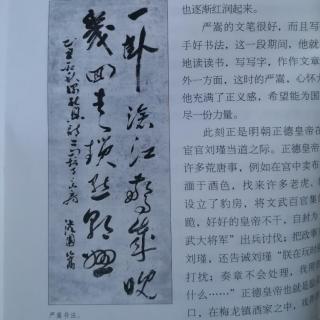 一卧沧江惊岁晚
几回青琐点朝班
严嵩书法。
也逐渐红润起来。
严嵩的文笔很好，而且写
手好书法，这一段期间，他就
地读读书，写写字，作作文章
外一方面，这时的严嵩，心怀
他充满了正义感，希望能为国
尽一份力量。
此刻正是明朝正德皇帝在
宦官刘瑾当道之际。正德皇帝
许多荒唐事，例如在宫中卖布
湎于酒色，找来许多老虎、
设立了豹房，将文武百官集
跪，好好的皇帝不干，自封为
武大将军”出兵讨伐；把政事
刘瑾，还告诫刘瑾“朕在玩时
打扰；奏章不会处理，我用
什么……”正德皇帝也就是
口，在梅龙镇酒家之中，戏